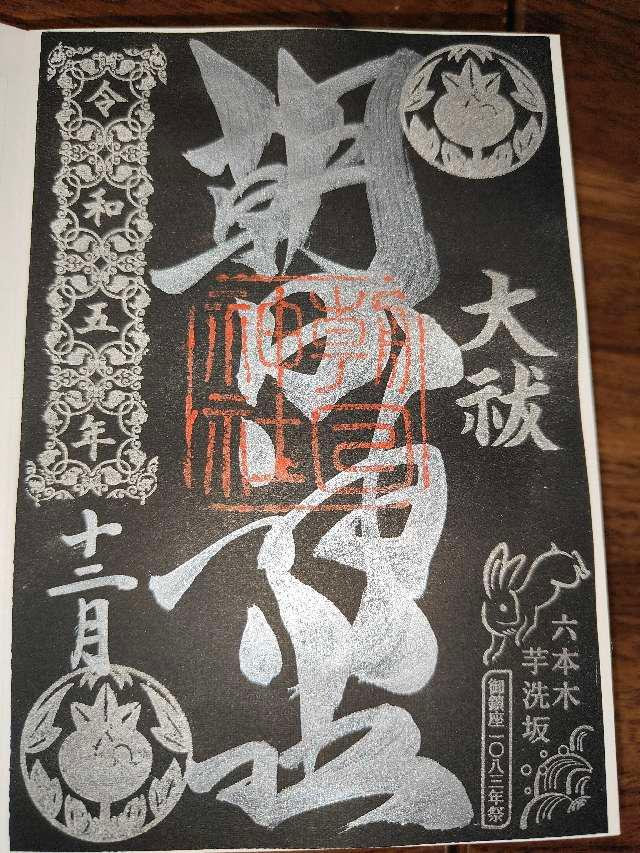 大祓
六本木
芋洗坂
御鎮座一〇八三年祭
朝日神社
朝日
神社
令和五年
十二月